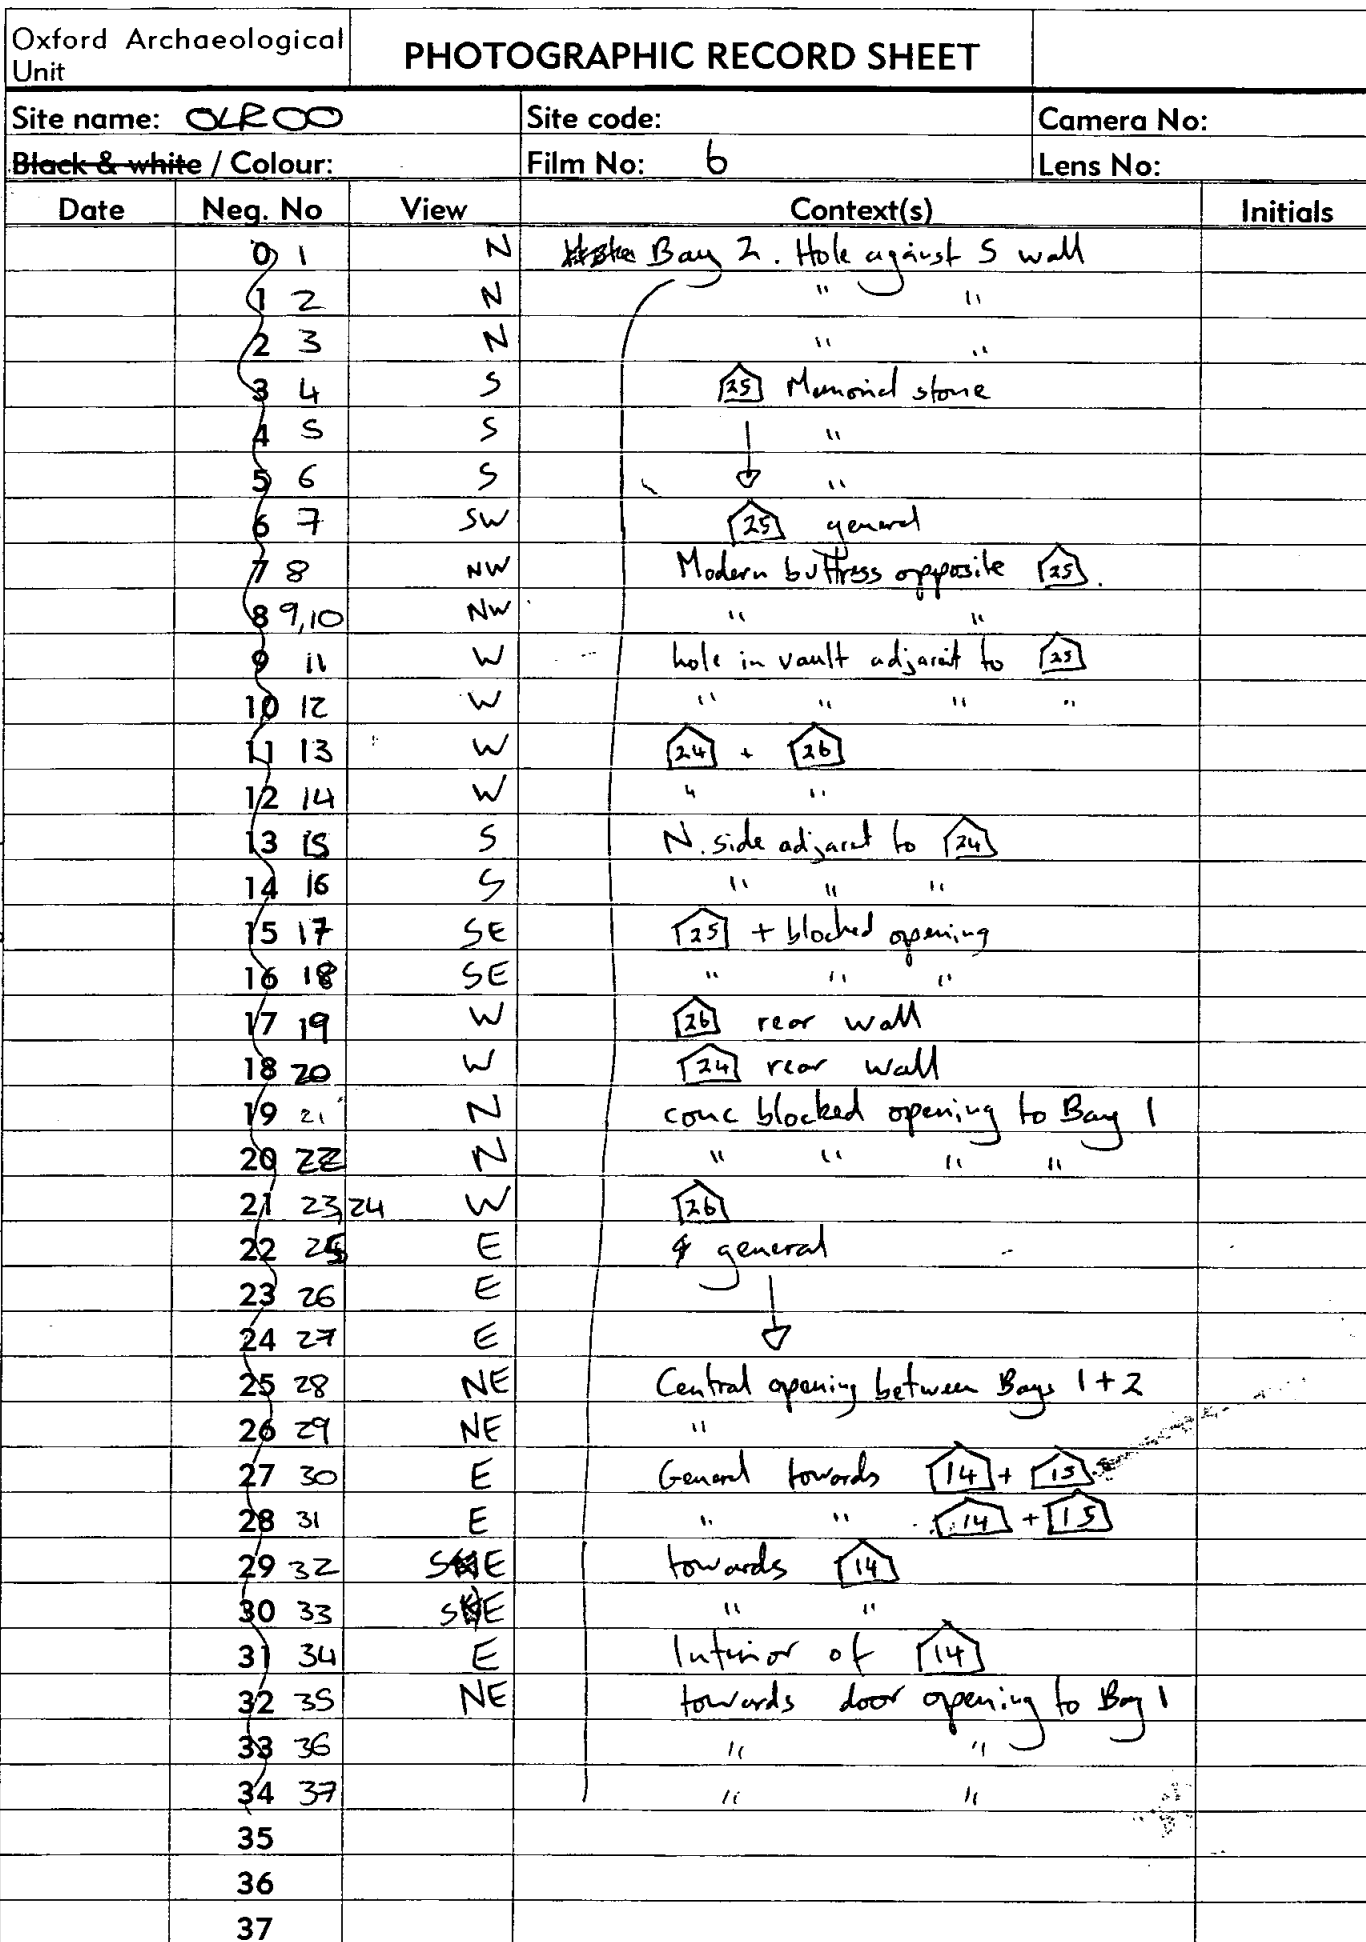 Oxford Archaeological Unit
PHOTOGRAPHIC RECORD SHEET
Site name: OLR00 Site code: Camera No:
Black & white / Colour: Film No: 6 Lens No:
Date Neg. No View Context(s) Initials
0 1 N Bay 2. Hole against S wall
1 2 N " "
2 3 N " "
3 4 S 25 Memorial stone
4 5 S "
5 6 S "
6 7 SW 25 general
7 8 NW Modern buttress opposite 25.
8 9,10 NW " "
9 11 W hole in vault adjacent to 25
10 12 W " " " "
11 13 W 24 + 26
12 14 W " "
13 15 S N. side adjacent to 24
14 16 S " " "
15 17 SE 25 + blocked opening
16 18 SE " " "
17 19 W 26 rear wall
18 20 W 24 rear wall
19 21 N conc blocked opening to Bay 1
20 22 N " " " "
21 23,24 W 26
22 25 E general
23 26 E
24 27 E
25 28 NE Central opening between Bays 1+2
26 29 NE "
27 30 E General towards 14 + 15
28 31 E " " 14 + 15
29 32 SE towards 14
30 33 SE " "
31 34 E Interior of 14
32 35 NE towards door opening to Bay 1
33 36 " "
34 37 " "
35
36
37